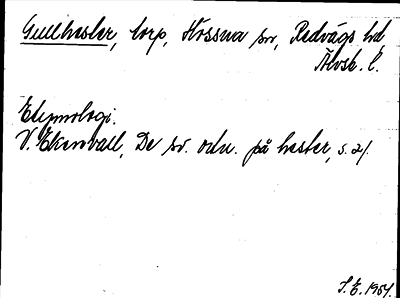 Gullhester, torp, Kossna sn, Redvägs hd
Älvsb. l.
Etymologi.
V. Ekenvall, De sv. ortn. på hester, s. 21.
S. E. 1954.